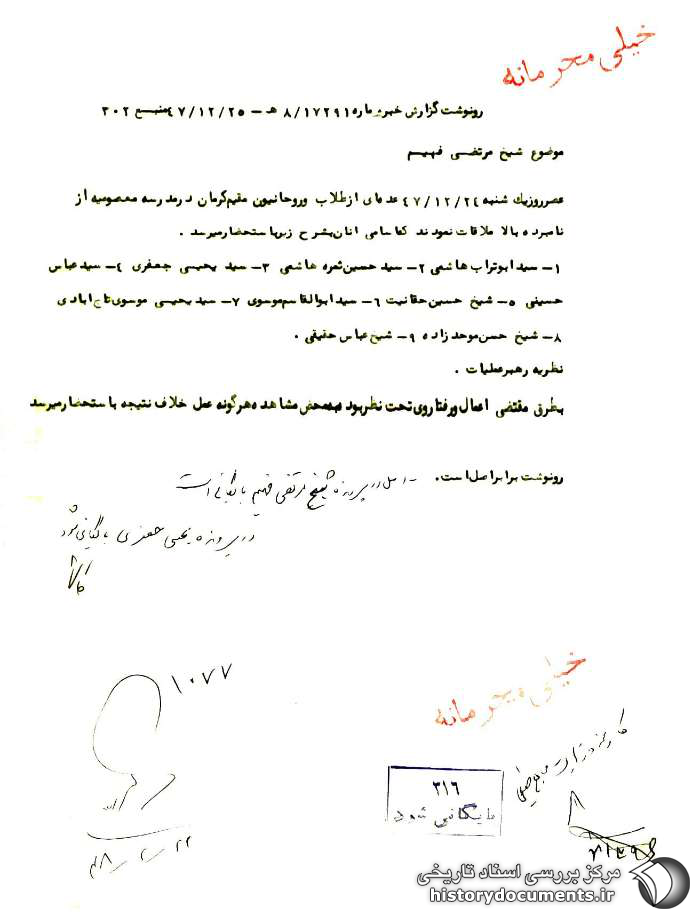 خیلی محرمانه
رونوشت گزارش خبر شماره ۸/۱۷۲۹۱ هـ - ۴۷/۱۲/۲۵ منبع ۳۰۲
موضوع شیخ مرتضی فهیم
عصر روز یک شنبه ۴۷/۱۲/۲۴ عده ای از طلاب و روحانیون مقیم کرمان در مدرسه معصومیه از
نامبرده بالا ملاقات نمودند که اسامی آنان بشرح زیر باستحضار میرسد .
۱- سید ابوتراب هاشمی ۲- سید حسین ثمره هاشمی ۳- سید یحیی جعفری ۴- سید عباس
حسینی ۵- شیخ حسین حقانیت ۶- سید ابوالقاسم موسوی ۷- سید یحیی موسوی تاج ابادی
۸- شیخ حسن موحد زاده ۹- شیخ عباس حقیقی .
نظریه رهبر عملیات .
بطرق مقتضی اعمال و رفتار وی تحت نظر بود بمحض مشاهده هرگونه عمل خلاف نتیجه باستحضار میرسد
رونوشت برابر اصل است . - اصل در پرونده شیخ مرتضی فهیم بایگانی است
در پرونده یحیی جعفری بایگانی شود
۱۰۷۷
خیلی محرمانه
۳۱۶
بایگانی شود
۴۸-۲-۲۲
مرکز بررسی اسناد تاریخی
historydocuments.ir